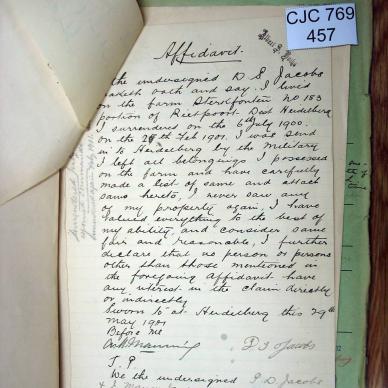 CJC 769
457
Affidavit.
the undersigned D S Jacobs
maketh oath and say. I lived
on the farm Sterkfontein No 153
portion of Rietpoort Dist Heidelberg
I surrendered on the 6th July 1900.
on the 28th Feb 1901. I was send
in to Heidelberg by the Military
I left all belongings I possessed
on the farm and have carefully
made a list of same and attach
same hereto, I never saw any
of my property again, I have
valued everything to the best of
my ability, and consider same
fair and reasonable, I further
declare that no person or persons
other than those mentioned in
the foregoing Affidavit have
any interest in the claim directly
or indirectly.
Sworn to at Heidelberg this 29th
May 1901
Before me
Manning D S Jacobs
J. P
We the undersigned P D Jacobs